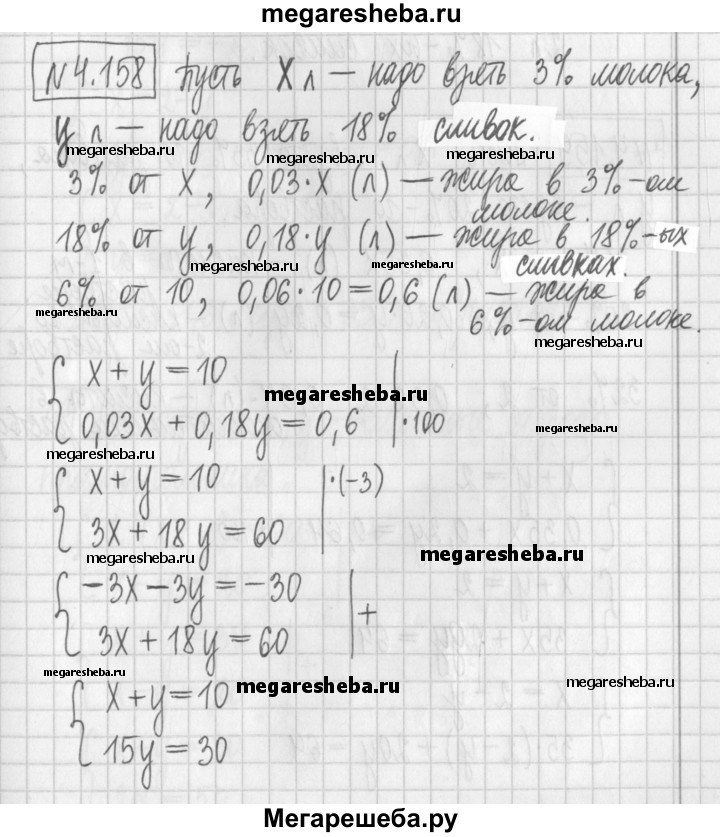 megaresheba.ru
№4.158 Пусть x л — надо взять 3% молока,
y л — надо взять 18% сливок.
megaresheba.ru megaresheba.ru megaresheba.ru
3% от x, 0,03·x (л) — жира в 3%-ом
молоке.
18% от y, 0,18·y (л) — жира в 18%-ых
megaresheba.ru megaresheba.ru
сливках.
6% от 10, 0,06·10=0,6 (л) — жира в
megaresheba.ru
6%-ом молоке.
megaresheba.ru
x+y=10
megaresheba.ru
0,03x+0,18y=0,6 |·100
megaresheba.ru
x+y=10 |·(-3)
3x+18y=60
megaresheba.ru megaresheba.ru
-3x-3y=-30
+
3x+18y=60
megaresheba.ru
x+y=10
megaresheba.ru megaresheba.ru
15y=30
Мегарешеба.ру